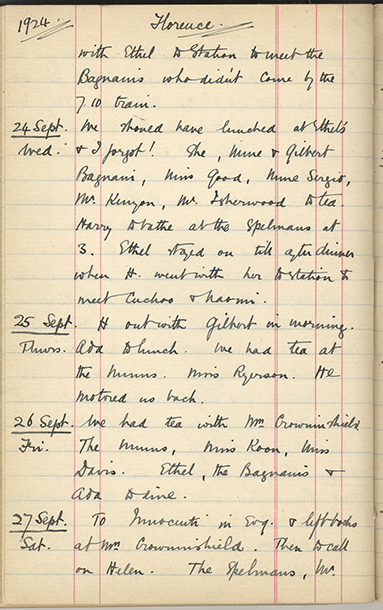 1924 Florence.
with Ethel to Station to meet the
Bagnanis who didn't come by the
7.10 train.
24 Sept. We should have lunched at Ethel's
Wed. & I forgot! She, Mme & Gilbert
Bagnani, Miss Good, Mme Sergio,
Mr. Kenyon, Mr. Isherwood to tea.
Harry to bathe at the Spelmans at
3. Ethel stayed on till after dinner
when H. went with her to station to
meet Cuchoo & Naomi.
25 Sept. H out with Gilbert in morning.
Thurs. Ada to lunch. We had tea at
the Munns. Miss Ryerson. He
motored us back.
26 Sept. We had tea with Mrs Crowninshield
Fri. The Munns, Miss Koon, Miss
Davis. Ethel, the Bagnanis &
Ada to dine.
27 Sept. To Innocenti in Evg. & left books
Sat. at Mrs Crowninshield. Then to call
on Helen. The Spelmans, Mr.